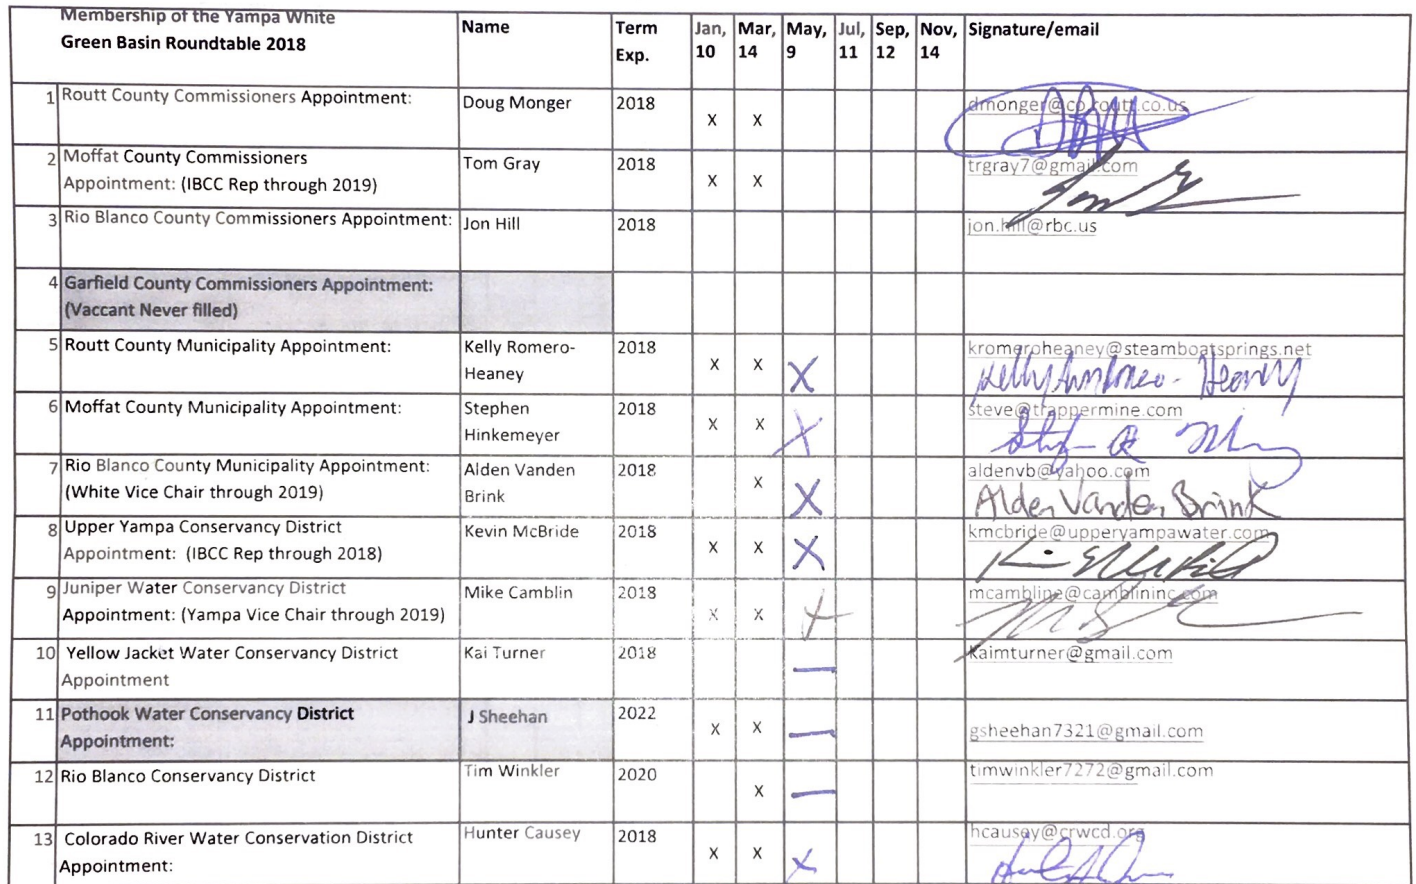 Membership of the Yampa White
Green Basin Roundtable 2018
Name
Term
Exp.
Jan,
10
Mar,
14
May,
9
Jul,
11
Sep,
12
Nov,
14
Signature/email
1 Routt County Commissioners Appointment: Doug Monger 2018 X X dmonger@co.routt.co.us
2 Moffat County Commissioners
Appointment: (IBCC Rep through 2019) Tom Gray 2018 X X trgray7@gmail.com
3 Rio Blanco County Commissioners Appointment: Jon Hill 2018 jon.hill@rbc.us
4 Garfield County Commissioners Appointment:
(Vaccant Never filled)
5 Routt County Municipality Appointment: Kelly Romero-
Heaney 2018 X X X kromeroheaney@steamboatsprings.net
Kelly Romero-Heaney
6 Moffat County Municipality Appointment: Stephen
Hinkemeyer 2018 X X X steve@trappermine.com
7 Rio Blanco County Municipality Appointment:
(White Vice Chair through 2019) Alden Vanden
Brink 2018 X X aldenvb@yahoo.com
Alden Vanden Brink
8 Upper Yampa Conservancy District
Appointment: (IBCC Rep through 2018) Kevin McBride 2018 X X X kmcbride@upperyampawater.com
9 Juniper Water Conservancy District
Appointment: (Yampa Vice Chair through 2019) Mike Camblin 2018 X X X mcambline@camblininc.com
10 Yellow Jacket Water Conservancy District
Appointment Kai Turner 2018 — kaimturner@gmail.com
11 Pothook Water Conservancy District
Appointment: J Sheehan 2022 X X — gsheehan7321@gmail.com
12 Rio Blanco Conservancy District Tim Winkler 2020 X — timwinkler7272@gmail.com
13 Colorado River Water Conservation District
Appointment: Hunter Causey 2018 X X X hcausey@crwcd.org